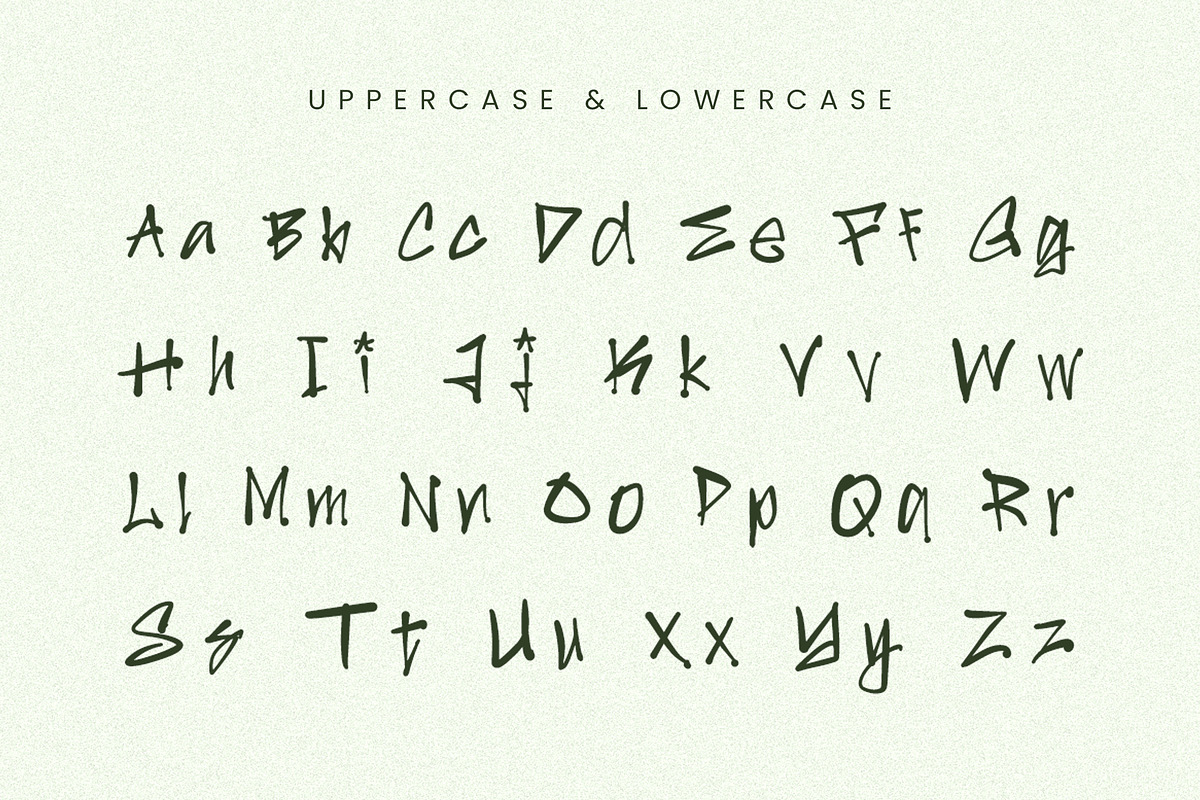 UPPERCASE & LOWERCASE
Aa Bb Cc Dd Ee Ff Gg
Hh Ii Jj Kk Vv Ww
Ll Mm Nn Oo Pp Qq Rr
Ss Tt Uu Xx Yy Zz